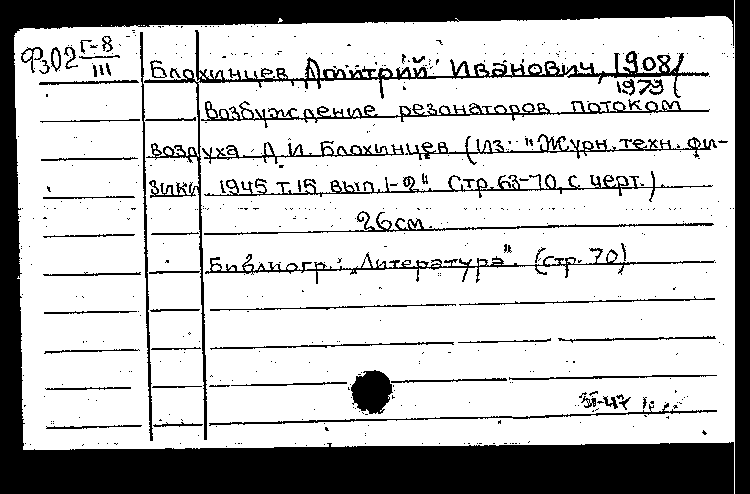 Ф302 Г-8
III
Блохинцев, Дмитрий Иванович, 1908/
1979
Возбуждение резонаторов потоком
воздуха. Д. И. Блохинцев (Из: "Журн. техн. фи-
зики 1945 т. 15, вып. 1-2". Стр. 63-70, с черт.).
26 см.
Библиогр.: „Литература". (стр. 70)